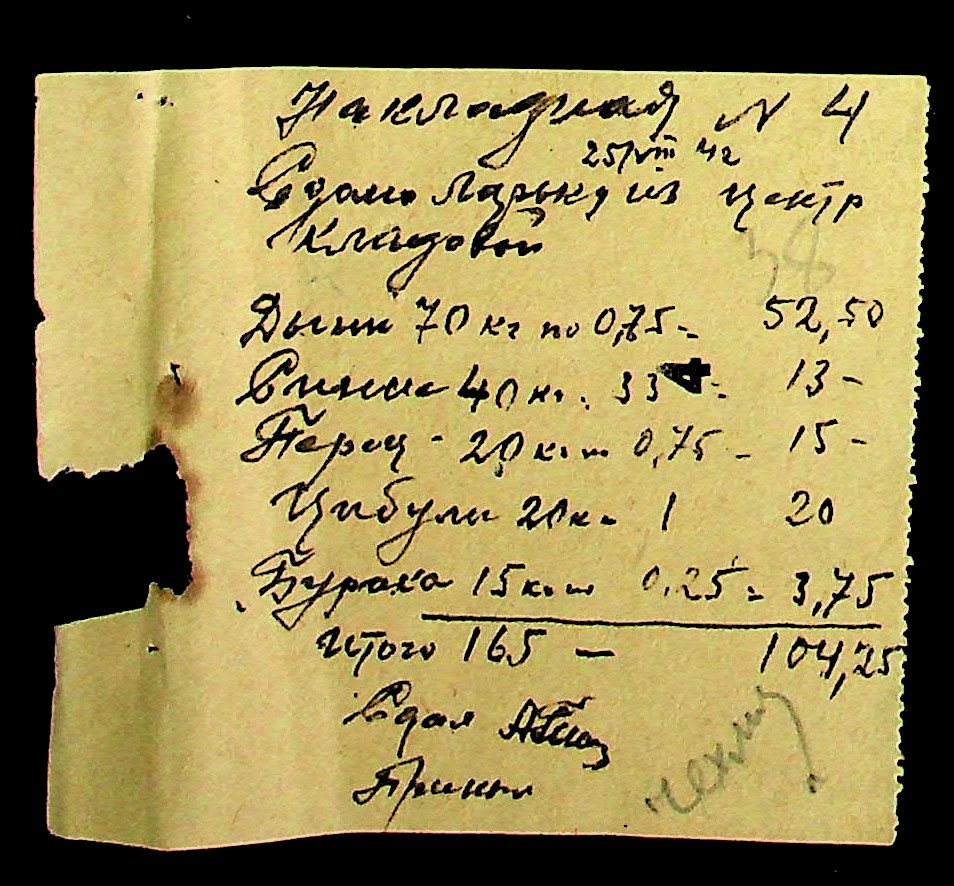 Накладная N 4
25/VIII 42
Сдано Ларьку из центр
Кладовой
38
Дыни 70 кг по 0,75 - 52,50
40 кг. 33 - 13 -
Перец - 20 кг по 0,75 - 15 -
Цибули 20 кг 1 20
Бурака 15 кг по 0,25 = 3,75
Итого 165 — 104,25
Сдал
Принял